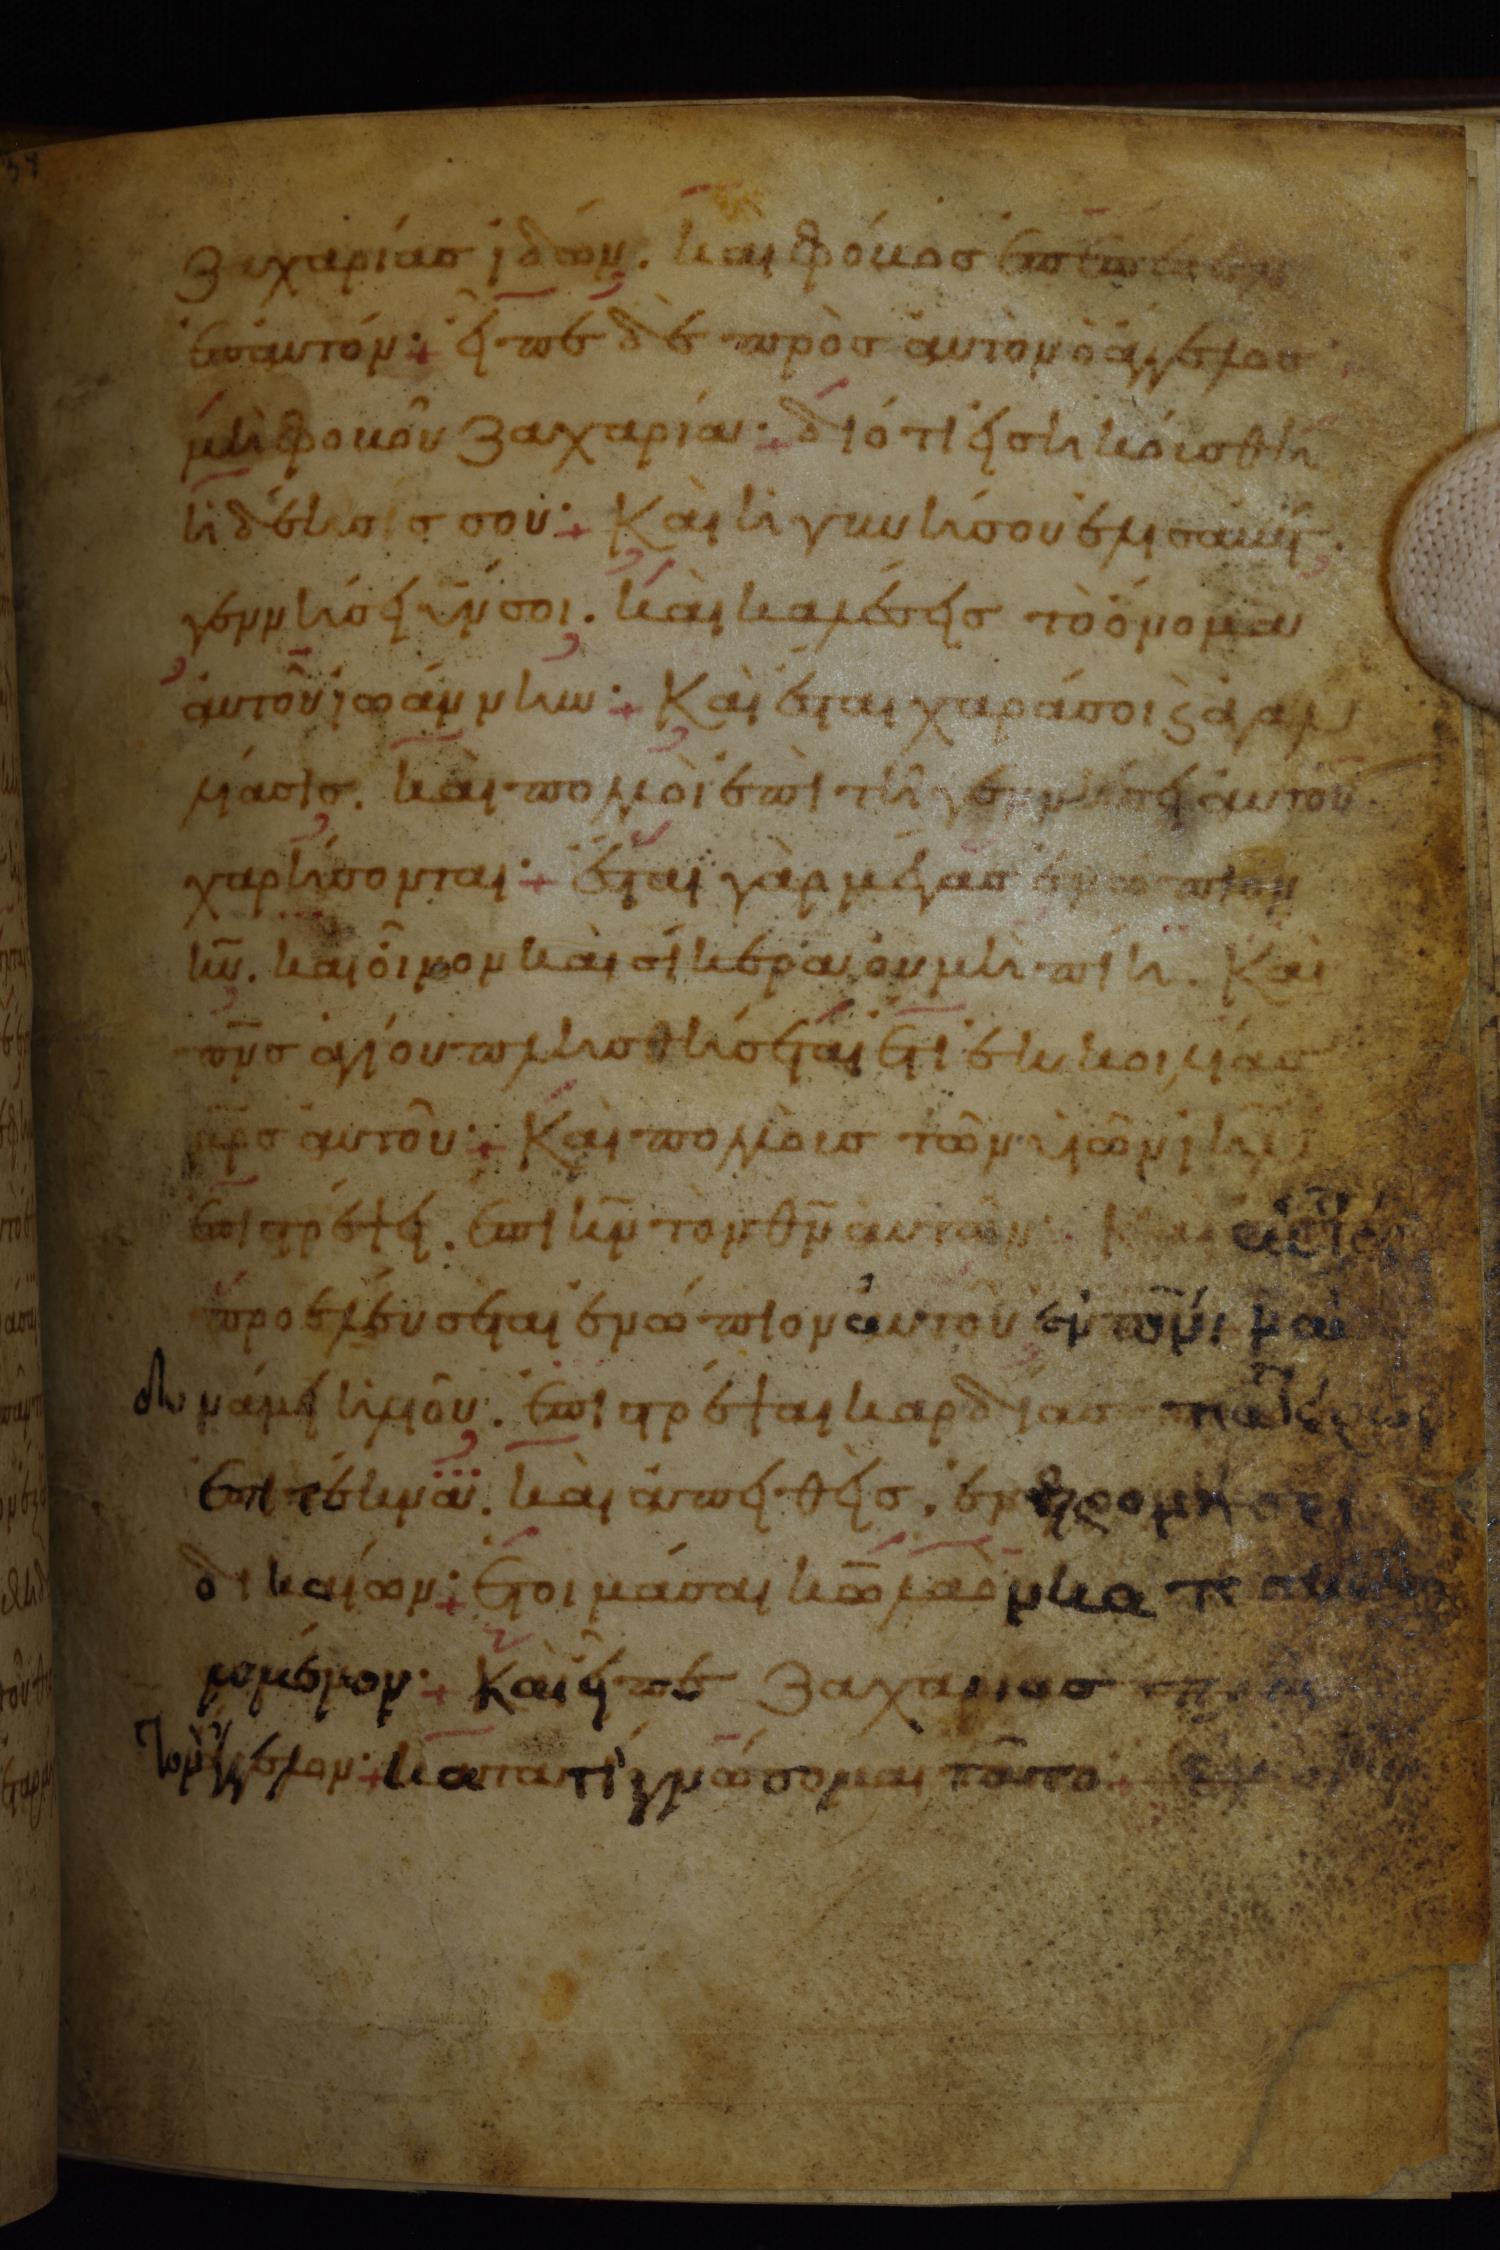 ζαχαρίασ ἰδών. και φόκοσ ἐπέπεσεν
ἐπαυτόν· ἔιπέ δὲ πρὸσ ἀυτὸν ὁ ἄγγελοσ
μὴ φοκοῦ ζαχαρία· διότι ἐισηκόυσθη
ἡ δέησίσ σου· Καὶ ἡ γυνή σου ἐλισάκετ
γεννήσει υῖν σοι. καὶ καλέσεισ τὸ ὄνομα
ἀυτοῦ ἰωάννην· Καὶ ἔσται χαρά σοι ϗ ἀγαλ
λίασισ. καὶ πολλοὶ ἐπὶ τῆ γεννήσει ἀυτοῦ
χαρήσονται· ἔσται γὰρ μέγασ ἐνώπιον
κῦ. και ὄινον καὶ σίκερα ὀυ μὴ πίη. Καὶ
πνσ ἁγίου πλησθήσεται ἔτι ἐκ κοιλίασ
μρσ ἀυτοῦ· Καὶ πολλοὺσ τῶν υἱῶν ιηλ
ἐπιστρέψει. ἐπι κν τὸν θν ἀυτῶν· Και αυτοσ
προελέυσεται ἐνώπιον ἀυτοῦ ἐν πνι και
δυνάμει ἡλιοῦ. ἐπιστρέψαι καρδίασ πατέρων
ἐπι τέκνα. καὶ ἀπειθεῖσ. ἐν φρονήσει
δικαίων· ἑτοιμάσαι κω λαὸν κατεσκευασ
μένον· Καὶ ἔιπέ ζαχαριασ προσ
τον ἄγγελον· κατα τί γνώσομαι τοῦτο·